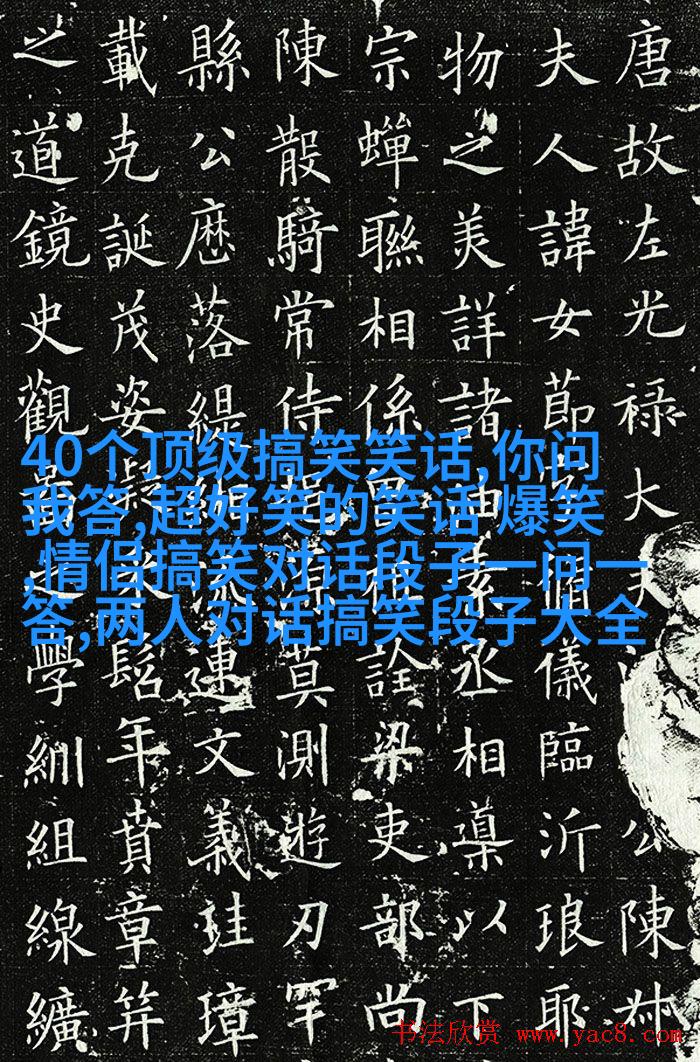 唐故左光禄大夫公陳
夫人諱女節脩儀臨沂琅耶
物之美詳諸油素丞相導以下
宗蟬聯相係相詮梁吏部尚
陳散騎常侍莫測遊刃罕
縣公歷落緹流連文義珪璋
載克誕茂姿髫年賁章笄
之道鏡史觀之學紃組線纊
40个顶级搞笑笑话,你问
我答,超好笑的笑话 爆笑
,情侣搞笑对话段子一问一
答,两人对话搞笑段子大全
书法欣赏 www.yac8.com